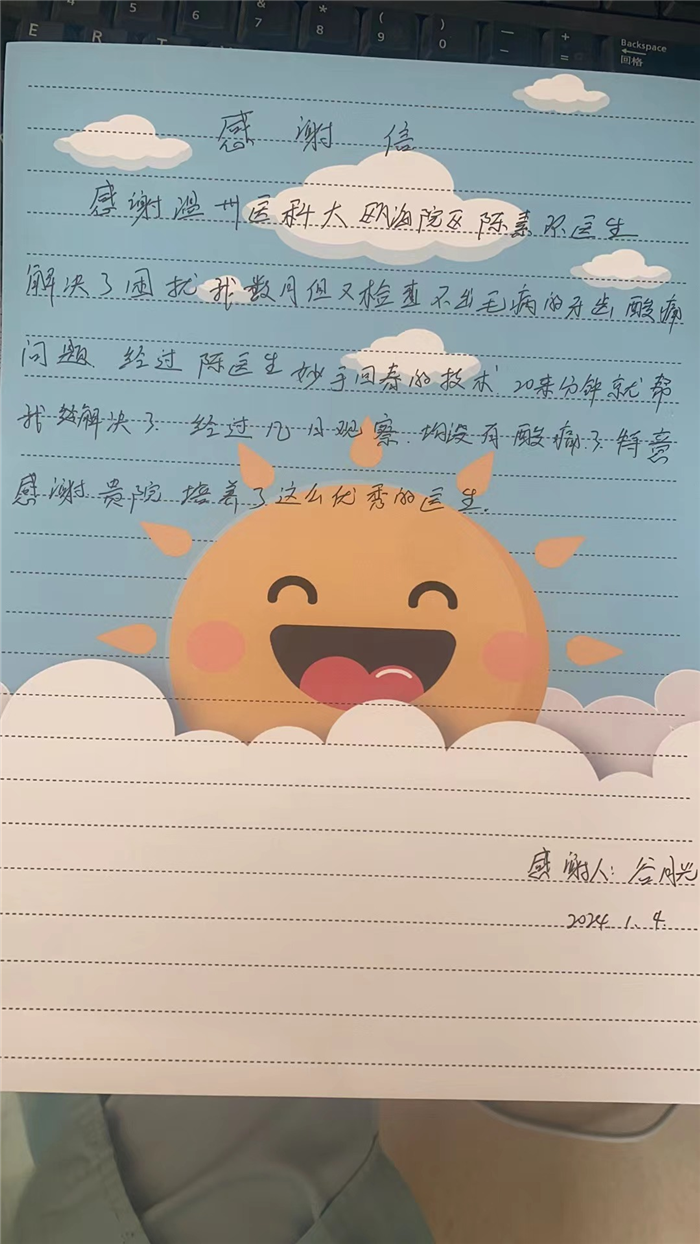 E R T
4 5 6 & 7 * 8 ( 9 ) 0 — - + =
Backspace
回格
感谢信
感谢温州医科大瓯海院区陈素环医生
解决了困扰我数月但又检查不出毛病的牙齿酸痛
问题 经过陈医生妙手回春的技术 20来分钟就帮
我给解决了 经过几日观察.均没有酸痛了.特意
感谢贵院培养了这么优秀的医生.
感谢人:谷月兴
2024.1.4.